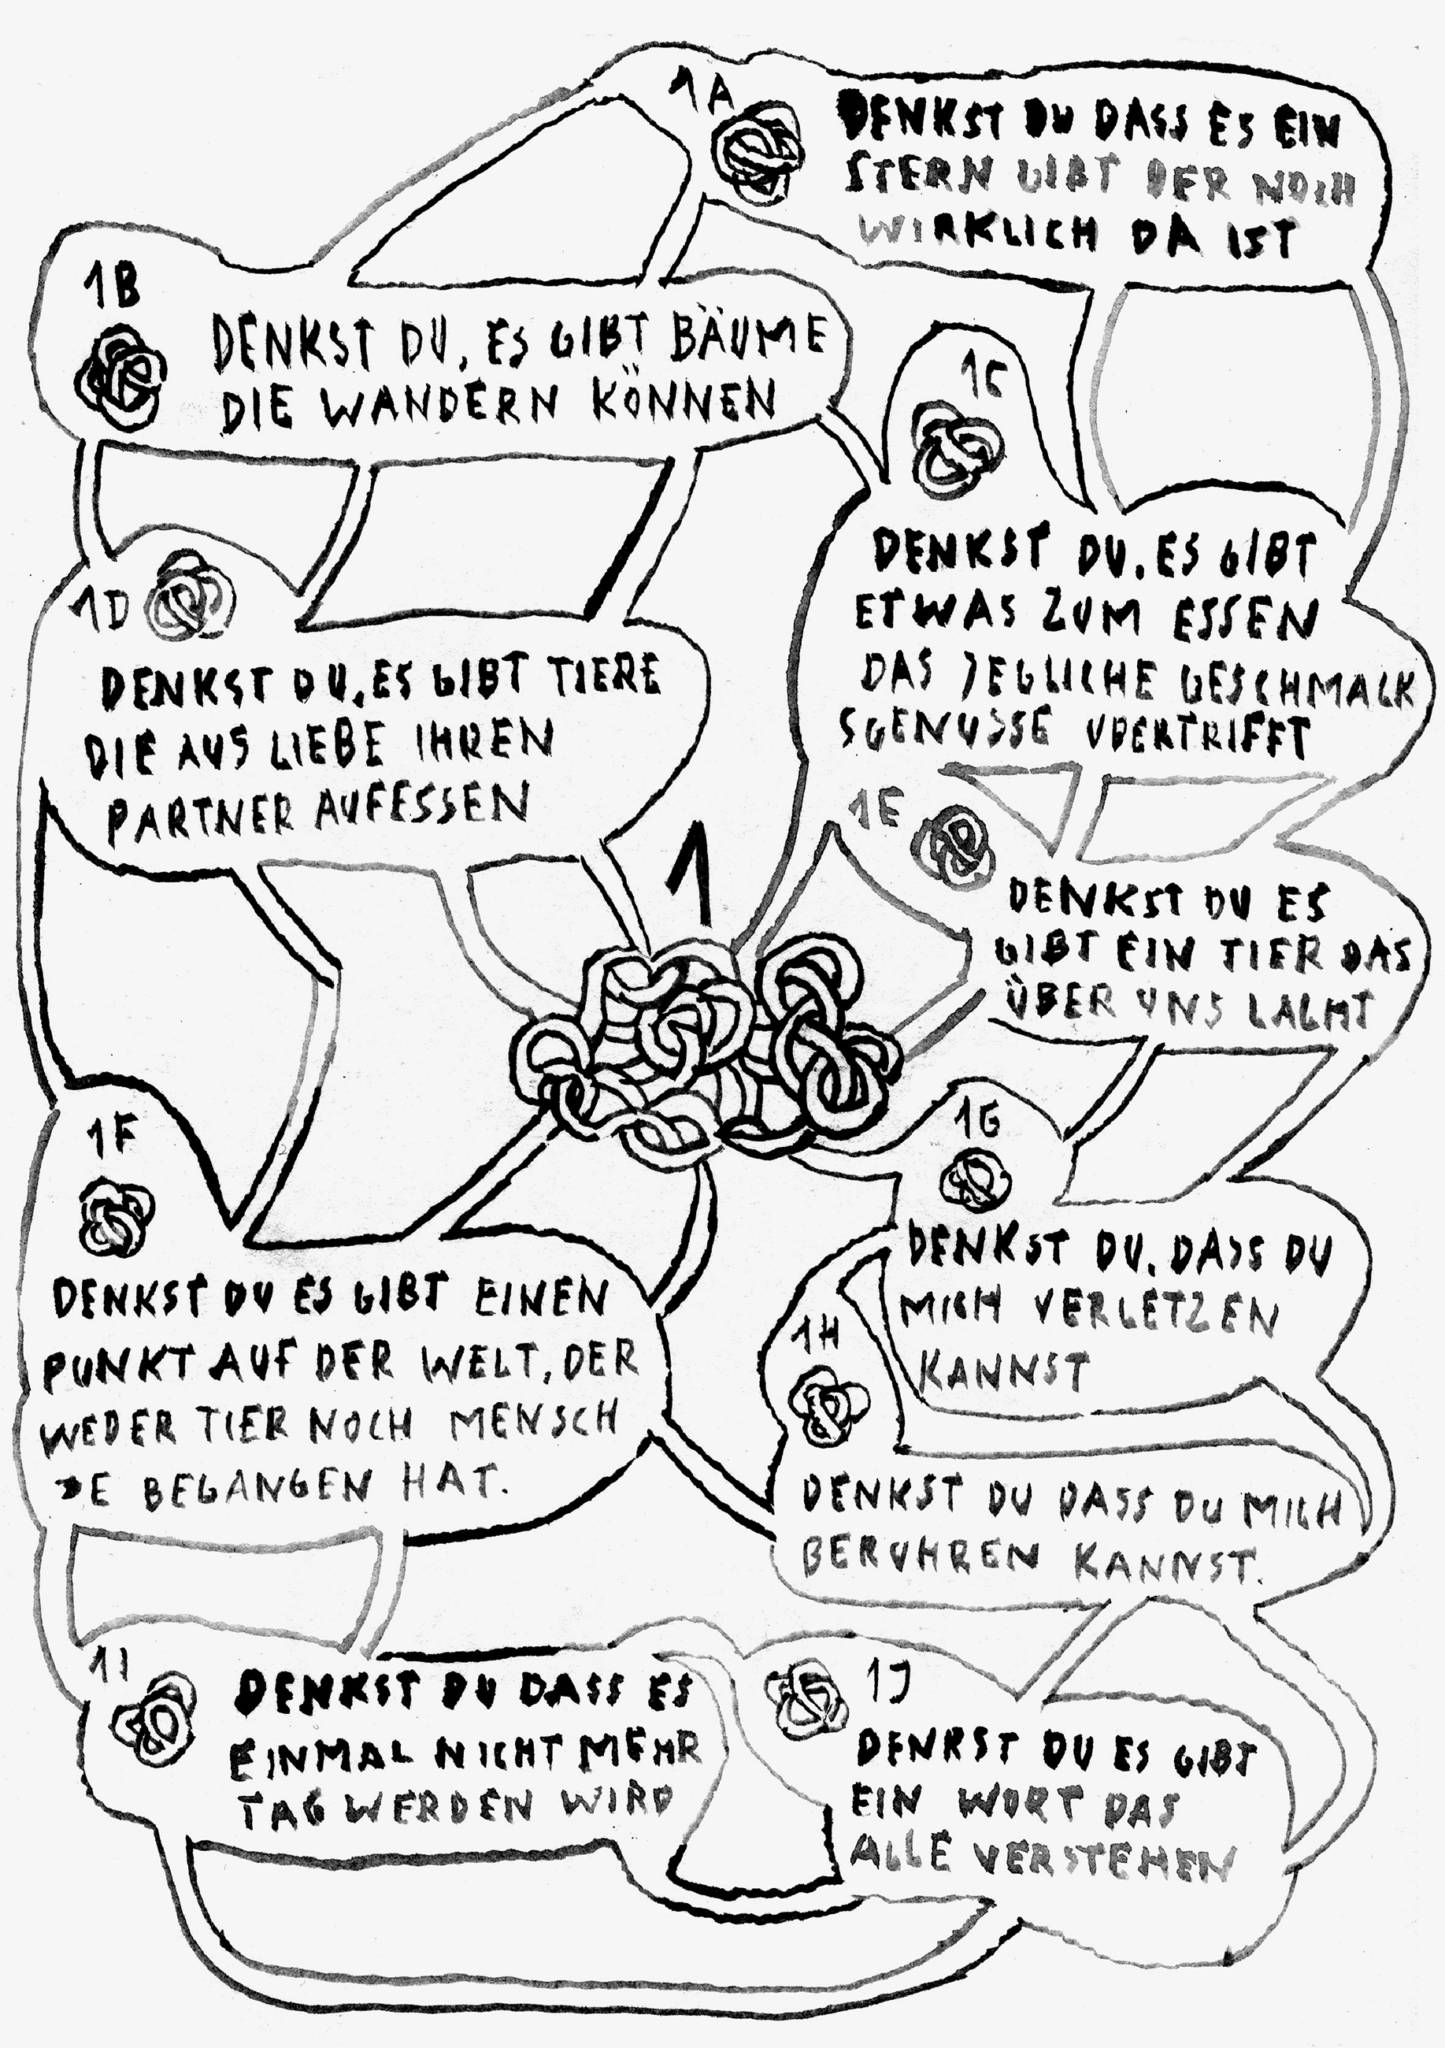 1A
DENKST DU DASS ES EIN
STERN GIBT DER NOCH
WIRKLICH DA IST
1B
DENKST DU, ES GIBT BÄUME
DIE WANDERN KÖNNEN
1C
DENKST DU, ES GIBT
ETWAS ZUM ESSEN
DAS JEGLICHE GESCHMACK
SGENUSSE UBERTRIFFT
1D
DENKST DU, ES GIBT TIERE
DIE AUS LIEBE IHREN
PARTNER AUFESSEN
1
1E
DENKST DU ES
GIBT EIN TIER DAS
ÜBER UNS LACHT
1F
DENKST DU ES GIBT EINEN
PUNKT AUF DER WELT, DER
WEDER TIER NOCH MENSCH
JE BEGANGEN HAT.
1G
DENKST DU, DASS DU
MICH VERLETZEN
KANNST
1H
DENKST DU DASS DU MICH
BERUHREN KANNST.
1I
DENKST DU DASS ES
EINMAL NICHT MEHR
TAG WERDEN WIRD
1J
DENKST DU ES GIBT
EIN WORT DAS
ALLE VERSTEHEN